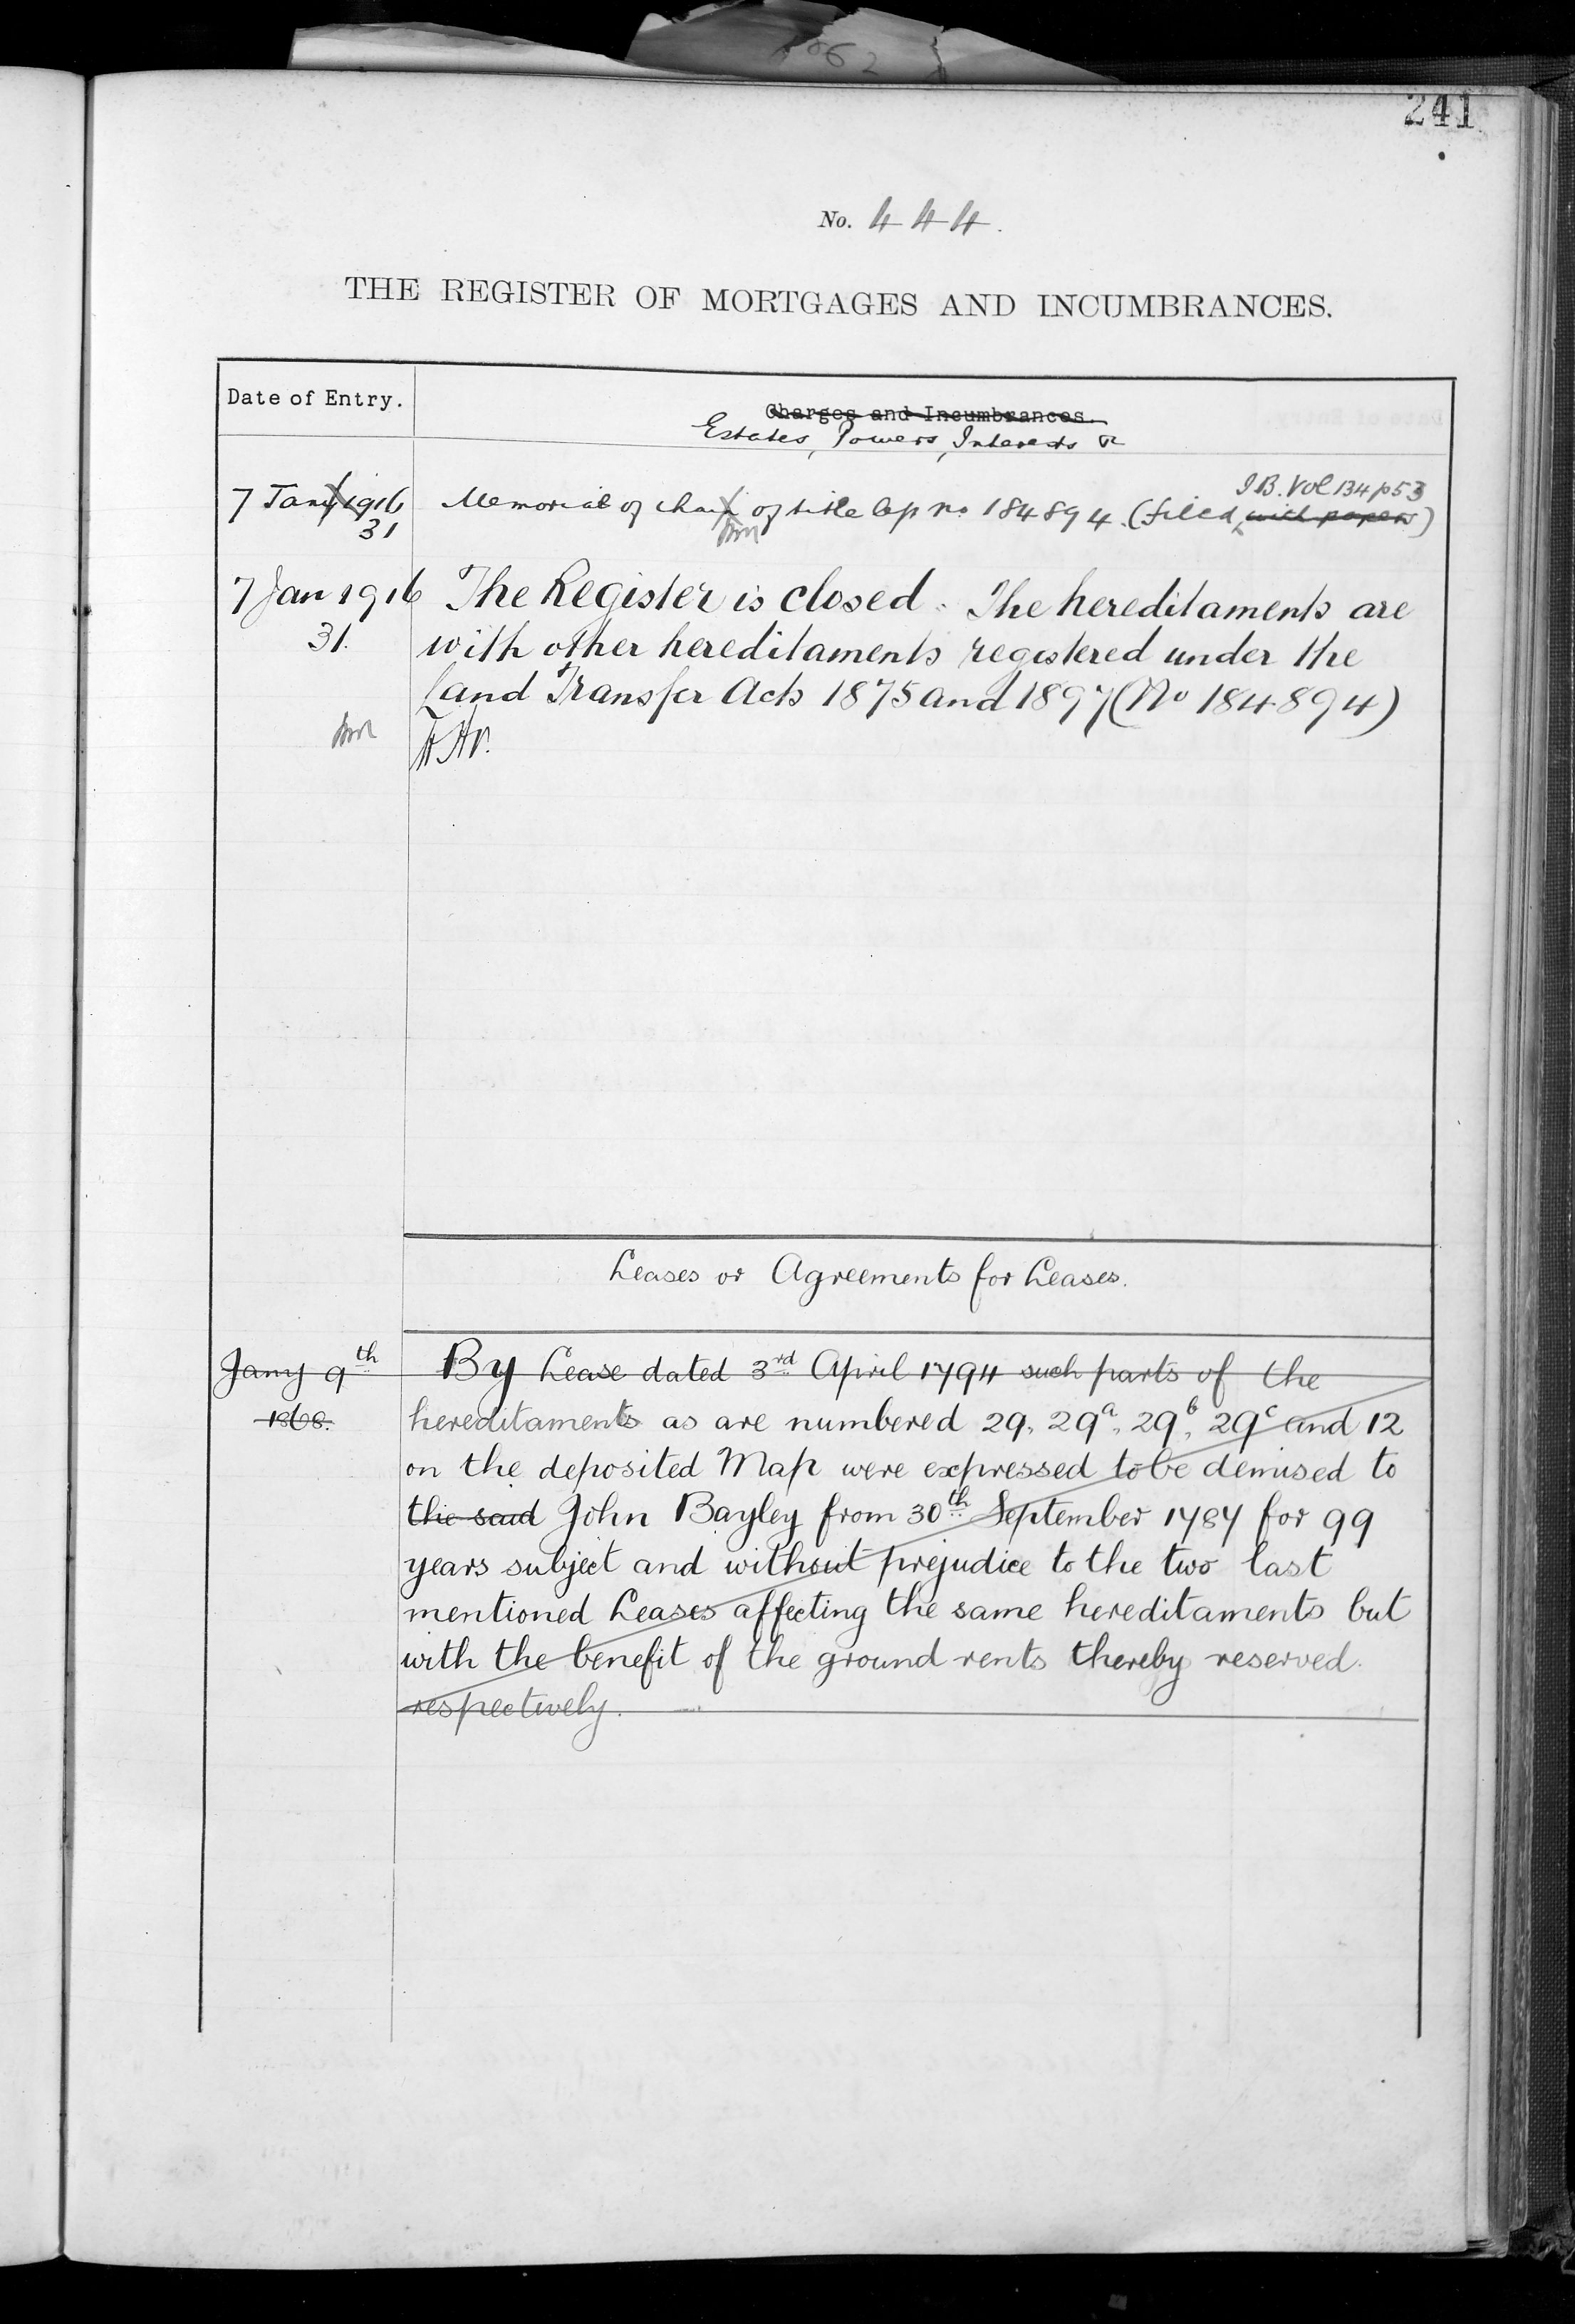 241
No. 444.
THE REGISTER OF MORTGAGES AND INCUMBRANCES.
Date of Entry.
Charges and Incumbrances.
Estates, Powers, Interests &c
I.B. Vol 134 p53
7 Jany 1916 Memorial of chain of title lap no 184894. (filed with papers)
31
7 Jan 1916 The Register is closed. The hereditaments are
31. with other hereditaments registered under the
Land Transfer Acts 1875 and 1897 (No 184894)
Leases or Agreements for Leases.
Jany 9th By Lease dated 3rd April 1794 such parts of the
1868. hereditaments as are numbered 29, 29a, 29b, 29c and 12
on the deposited Map were expressed to be demised to
the said John Bayley from 30th September 1787 for 99
years subject and without prejudice to the two last
mentioned Leases affecting the same hereditaments but
with the benefit of the ground rents thereby reserved
respectively.